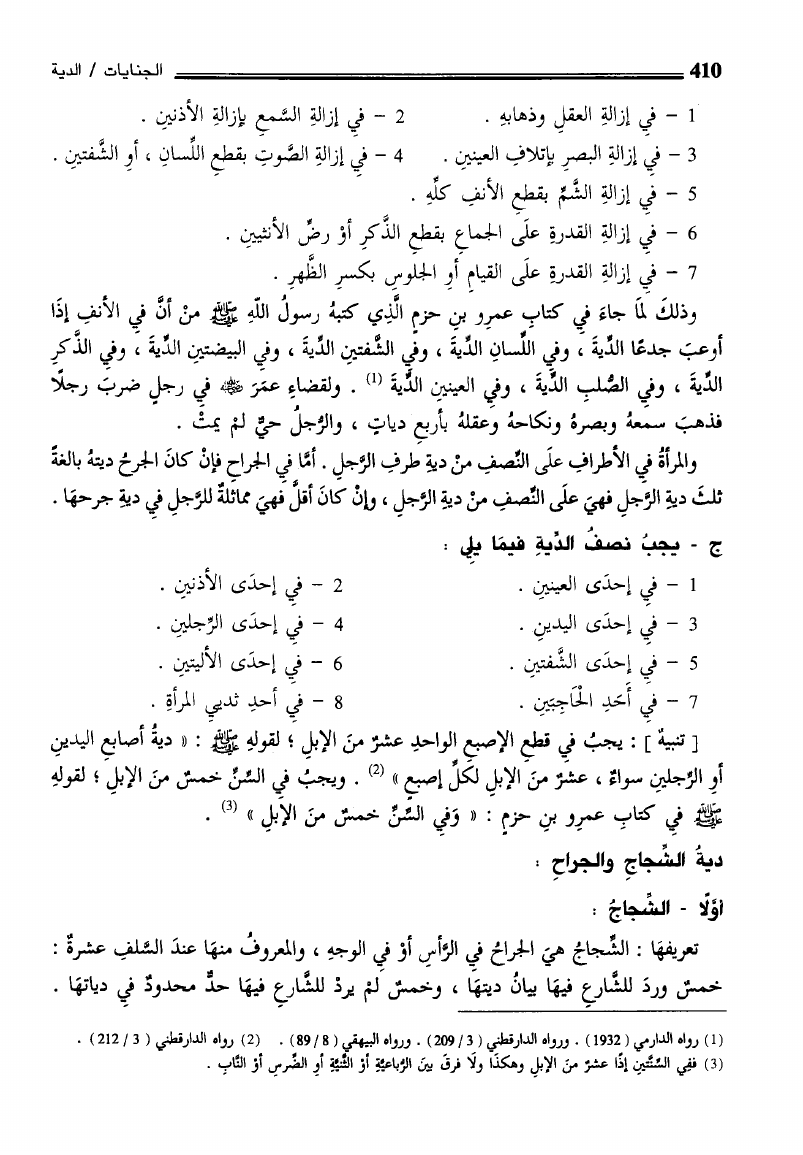 410 الجنايات / الدية
1 - في إزالةِ العقلِ وذهابهِ . 2 - في إزالةِ السَّمعِ بإزالةِ الأذنينِ .
3 - في إزالةِ البصرِ بإتلافِ العينينِ . 4 - في إزالةِ الصَّوتِ بقطعِ اللِّسانِ ، أوِ الشَّفتينِ .
5 - في إزالةِ الشَّمِّ بقطعِ الأنفِ كلِّهِ .
6 - في إزالةِ القدرةِ علَى الجماعِ بقطعِ الذَّكرِ أوْ رضِّ الأنثيينِ .
7 - في إزالةِ القدرةِ علَى القيامِ أوِ الجلوسِ بكسرِ الظَّهرِ .
وذلكَ لمَا جاءَ في كتابِ عمرِو بنِ حزمٍ الَّذِي كتبهُ رسولُ اللَّهِ ﷺ منْ أنَّ في الأنفِ إذَا
أوعبَ جدعًا الدِّيةَ ، وفي اللِّسانِ الدِّيةَ ، وفي الشَّفتينِ الدِّيةَ ، وفي البيضتينِ الدِّيةَ ، وفي الذَّكرِ
الدِّيةَ ، وفي الصُّلبِ الدِّيةَ ، وفي العينينِ الدِّيةَ (1) . ولقضاءِ عمَرَ رضي الله عنه في رجلٍ ضربَ رجلًا
فذهبَ سمعهُ وبصرهُ ونكاحهُ وعقلهُ بأربعِ دياتٍ ، والرَّجلُ حيٌّ لمْ يمتْ .
والمرأةُ في الأطرافِ علَى النِّصفِ منْ ديةِ طرفِ الرَّجلِ . أمَّا في الجراحِ فإنْ كانَ الجرحُ ديتهُ بالغةً
ثلثَ ديةِ الرَّجلِ فهيَ علَى النِّصفِ منْ ديةِ الرَّجلِ ، وإنْ كانَ أقلَّ فهيَ مماثلةٌ للرَّجلِ في ديةِ جرحهَا .
ج - يجبُ نصفُ الدِّيةِ فيمَا يلِي :
1 - في إحدَى العينينِ . 2 - في إحدَى الأذنينِ .
3 - في إحدَى اليدينِ . 4 - في إحدَى الرِّجلينِ .
5 - في إحدَى الشَّفتينِ . 6 - في إحدَى الأليتينِ .
7 - في أَحَدِ الْحَاجِبَينِ . 8 - في أحدِ ثدييِ المرأةِ .
[ تنبيهٌ ] : يجبُ في قطعِ الإصبعِ الواحدِ عشرٌ منَ الإبلِ ؛ لقولهِ ﷺ : « ديةُ أصابعِ اليدينِ
أوِ الرِّجلينِ سواءٌ ، عشرٌ منَ الإبلِ لكلِّ إصبعٍ » (2) . ويجبُ في السِّنِّ خمسٌ منَ الإبلِ ؛ لقولهِ
ﷺ في كتابِ عمرِو بنِ حزمٍ : « وَفي السِّنِّ خمسٌ منَ الإبلِ » (3) .
ديةُ الشِّجاجِ والجراحِ :
أوَّلًا - الشِّجاجُ :
تعريفهَا : الشِّجاجُ هيَ الجراحُ في الرَّأسِ أوْ في الوجهِ ، والمعروفُ منهَا عندَ السَّلفِ عشرةٌ :
خمسٌ وردَ للشَّارعِ فيهَا بيانُ ديتهَا ، وخمسٌ لمْ يردْ للشَّارعِ فيهَا حدٌّ محدودٌ في دياتهَا .
(1) رواه الدارمي ( 1932 ) . ورواه الدارقطني ( 3 / 209 ) . ورواه البيهقي ( 8 / 89 ) . (2) رواه الدارقطني ( 3 / 212 ) .
(3) ففِي السِّنَّينِ إذًا عشرٌ منَ الإبلِ وهكذَا ولَا فرقَ بينَ الرُّباعيَّةِ أوْ الثَّنيَّةِ أوِ الضِّرسِ أوْ النَّابِ .